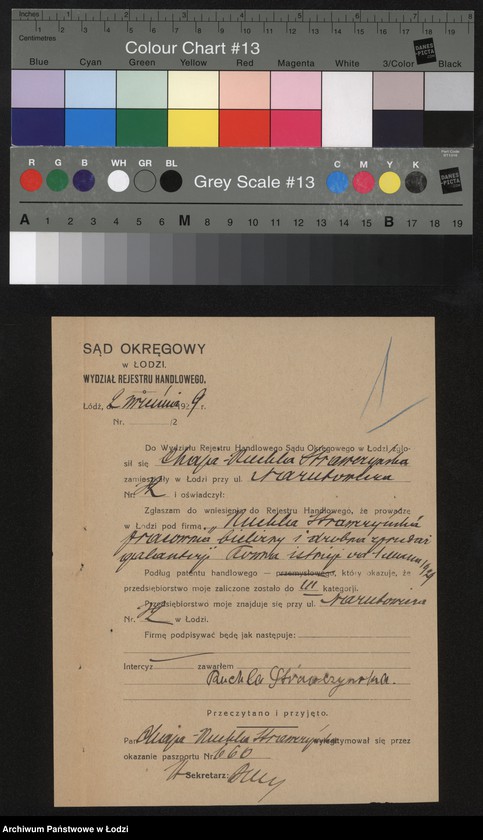 Inches 1 2 3 4 5 6 7 8
Centimetres 1 2 3 4 5 6 7 8 9 10 11 12 13 14 15 16 17 18 19
Colour Chart #13
DANES-PICTA
Blue Cyan Green Yellow Red Magenta White 3/Color Black
R G B WH GR BL Grey Scale #13 C M Y K DANES-PICTA
A 1 2 3 4 5 6 M 8 9 10 11 12 13 14 15 B 17 18 19
SĄD OKRĘGOWY
W ŁODZI.
WYDZIAŁ REJESTRU HANDLOWEGO.
Łódź, d. 2 września 1929 r.
Nr. /2
Do Wydziału Rejestru Handlowego Sądu Okręgowego w Łodzi zgło-
sił się Chaja-Ruchla Strawczyńska
zamieszkały w Łodzi przy ul. Narutowicza
Nr. i oświadczył:
Zgłaszam do wniesienia do Rejestru Handlowego, że prowadzę
w Łodzi pod firmą „Ruchla Strawczyńska
pracownia bielizny i drobna sprzedaż
galanterji Firma istnieje od
Podług patentu handlowego — przemysłowego, który okazuję, że
przedsiębiorstwo moje zaliczone zostało do III kategorji.
Przedsiębiorstwo moje znajduje się przy ul. Narutowicza
Nr. w Łodzi.
Firmę podpisywać będę jak następuje:
Intercyz zawarłem
Ruchla Strawczynska.
Przeczytano i przyjęto.
Pan Chaja-Ruchla Strawczyńska wylegitymował się przez
okazanie paszportu Nr. 660
Sekretarz:
Archiwum Państwowe w Łodzi